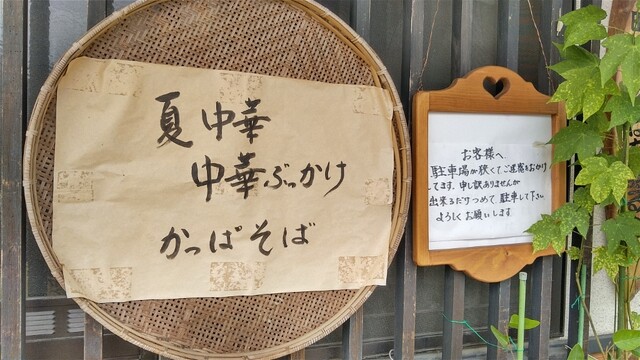 夏中華
中華ぶっかけ
かっぱそば
お客様へ
駐車場が狭くてご迷惑をおかけ
してます。申し訳ありませんが
出来るだけつめて駐車して下さい
よろしくお願いします